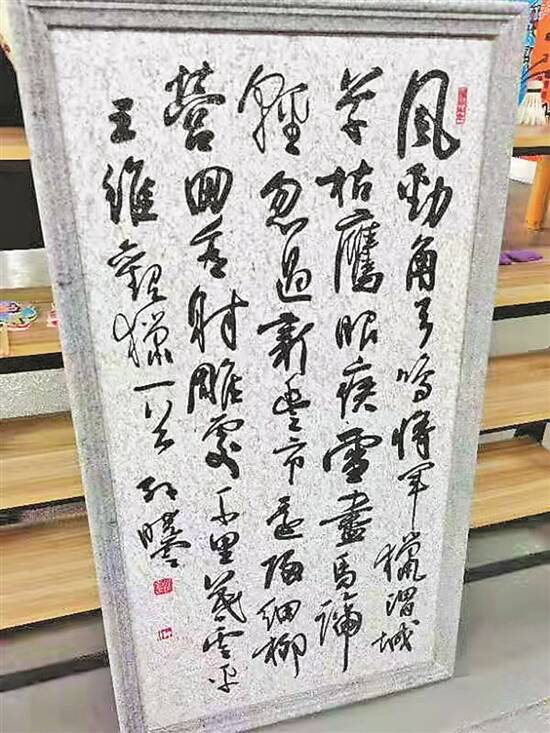 風勁角弓鳴將軍獵渭城
草枯鷹眼疾雪盡馬蹄
輕忽過新豐市還歸細柳
營回看射雕處千里暮雲平
王維觀獵一首 孫曉雲